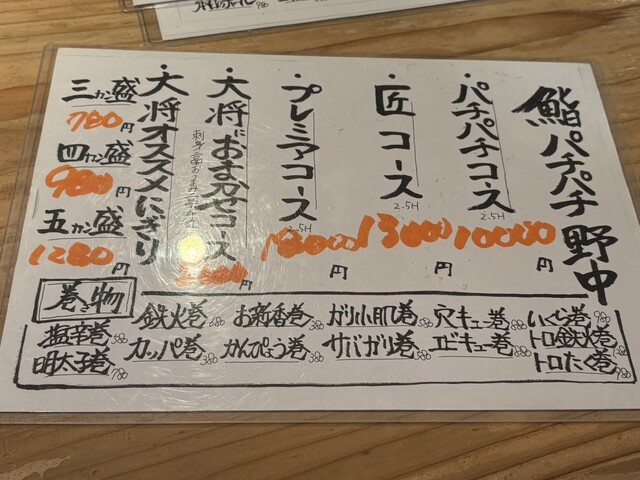 鮨パチパチ野中
・パチパチコース
2.5H
10000円
・匠コース
2.5H
13000円
・プレミアコース
2.5H
18000円
・大将におまかせコース
円
・大将オススメにぎり
三カン盛
780円
四カン盛
980円
五カン盛
1280円
巻き物
いくら巻 980
トロ鉄火巻 980
トロたく巻 980
穴キュー巻 880
エビキュー巻 880
ガリ小肌巻
サバガリ巻
お新香巻 380
かんぴょう巻 380
鉄火巻 680
カッパ巻 380
塩辛巻 580
明太子巻 780